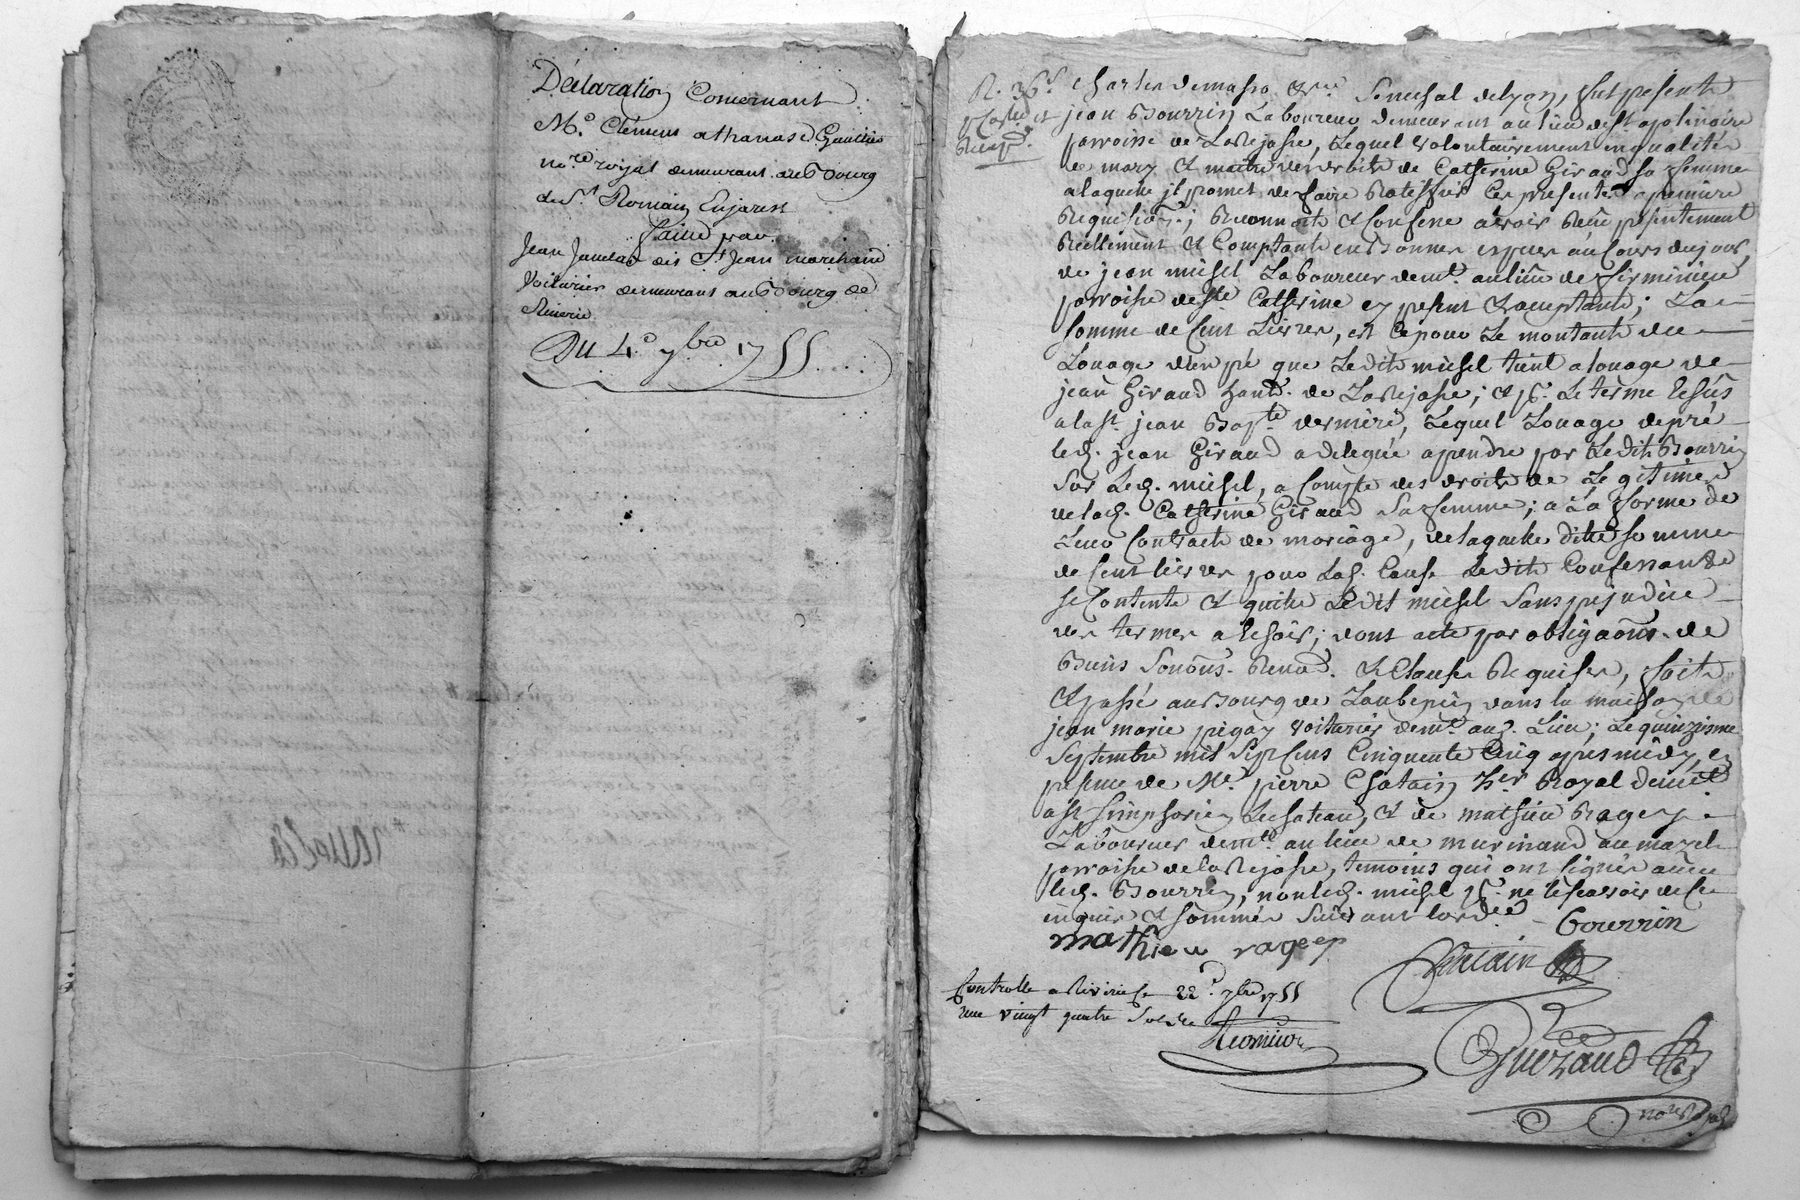 Déclaration Concernant
Me. Clémens athanase Gaultier
nore. royal demeurant au Bourg
de St. Romain En jarest
faitte par
Jean Jumelas dit St Jean marchand
Voiturier demeurant au Bourg de
Riverie
Du 4e. 7bre 1755
Charles demasso Senechal delyon, fut presente
jean Bourrin Laboureur demeurant au lieu de St. apolinaire
parroisse de Larejasse, Lequel volontairement en qualité
de mary et maitre des droits de Catherine Giraud sa femme
a laquelle jl promet de faire Ratiffier Ces presentes a premiere
Requisition; Reconnoit et Confesse avoir Reçu presentement
Reellement et Comptant en Bonnes especes au Cours du jour,
de jean michel Laboureur demt. au lieu de firminieu
parroisse de Ste Catherine cy present et acceptant; La
somme de Cent Livres, et Ce pour Le montant du
Louage d'un pré que Ledit michel tient a louage de
jean Giraud de Larejasse; et Le terme Echus
a la St. jean Bapte. derniere, Lequel Louage de pré
led. jean Giraud a delegué a prendre par Ledit Bourrin
Sur Led. michel, a Compte des droits de Legitime
de lad. Catherine Giraud Sa femme; a La forme de
Leur Contract de mariage, de laquelle ditte somme
de Cent livres pour Lad. Cause Ledit Confessant
se Contente et quitte Ledit michel Sans prejudice
des termes a Echoir; dont acte par obligaons. de
Biens Renon. et Clauses Requises, fait
et passé au Bourg de Laubepin dans la maison de
jean marie pigay Voiturier demt. aud. Lieu; Le quinzieme
Septembre mil Sept Cens Cinquante Cinq apres midy, en
presence de Me. pierre Chatain Royal demt.
a St Simphorien Le chateau, et de mathieu Ragey
Laboureur demt. au lieu de murinand au mazel
parroisse de la Rejasse, temoins qui ont signés avec
led. Bourrin, non led. michel ne le scavoir de ce
enquis et sommés Suivant lordce
Bourrin
mathieu ragey
Chatain
Controllé a Riverie le 22e. 7bre 1755
vingt quatre Sols
Guezaud
nore Royal